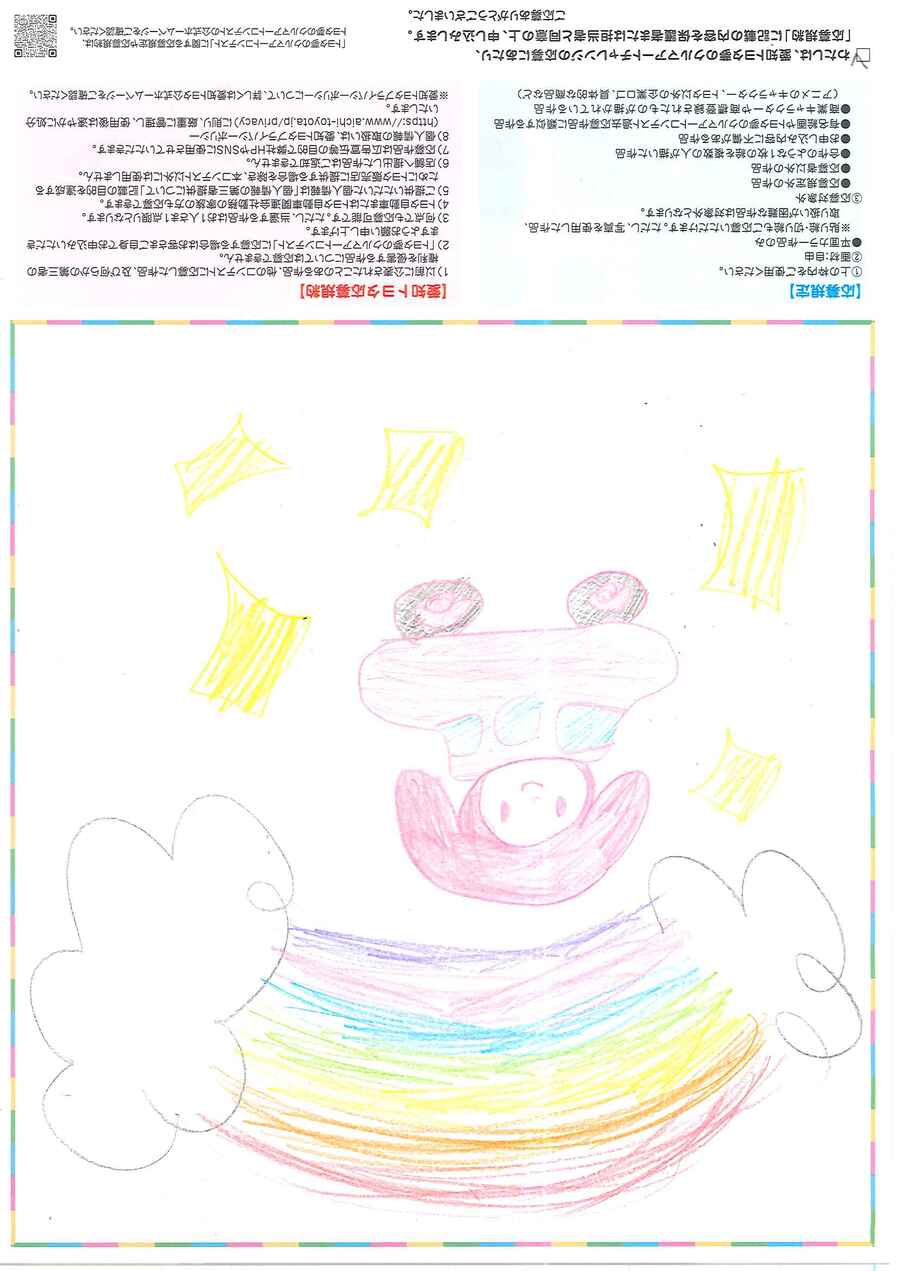 【応募規定】
①上の枠内をご使用ください。
②画材:自由
●平面カラー作品のみ
※貼り絵・切り絵もご応募いただけます。ただし、写真を使用した作品、
取り扱いが困難な作品は対象外となります。
③応募対象外
●応募規定外の作品
●応募者以外の作品
●合作のような1枚の絵を複数の人が描いた作品
●お申し込み内容に不備がある作品
●有名絵画やトヨタ夢のクルマアートコンテスト過去応募作品に類似する作品
●商業キャラクターや商標登録されたものが描かれている作品
(アニメのキャラクター、トヨタ以外の企業ロゴ、具体的な商品など)
【愛知トヨタ応募規約】
1)以前に公表されたことのある作品、他のコンテストに応募した作品、及び何らかの第三者の
権利を侵害する作品については応募できません。
2)「トヨタ夢のクルマアートコンテスト」に応募する場合はお客さまご自身でお申込みいただき
ますようお願い申し上げます。
3)何点でも応募可能です。ただし、当選する作品はお1人さま1点限りとなります。
4)トヨタ自動車またはトヨタ自動車関連会社勤務の家族の方も応募できます。
5)ご提供いただいた個人情報は「個人情報の第三者提供について」記載の目的を達成する
ためにトヨタ販売店に提供する場合を除き、本コンテスト以外には使用しません。
6)店舗へ提出した作品はご返却できません。
7)応募作品は広告宣伝等の目的で弊社HPやSNSに使用させていただきます。
8)個人情報の取扱いは、愛知トヨタプライバシーポリシー
(https://www.aichi-toyota.jp/privacy)に則り、厳重に管理し、使用後は速やかに処分
いたします。
※愛知トヨタプライバシーポリシーについて、詳しくは愛知トヨタ公式ホームページをご確認ください。
わたしは、愛知トヨタ夢のクルマアートチャレンジの応募にあたり、
「応募規約」に記載の内容を保護者または担当者と同意の上、申し込みします。
ご応募ありがとうございました。
「トヨタ夢のクルマアートコンテスト」に関する応募規定や応募規約は、
トヨタ夢のクルマアートコンテストの公式ホームページをご確認ください。